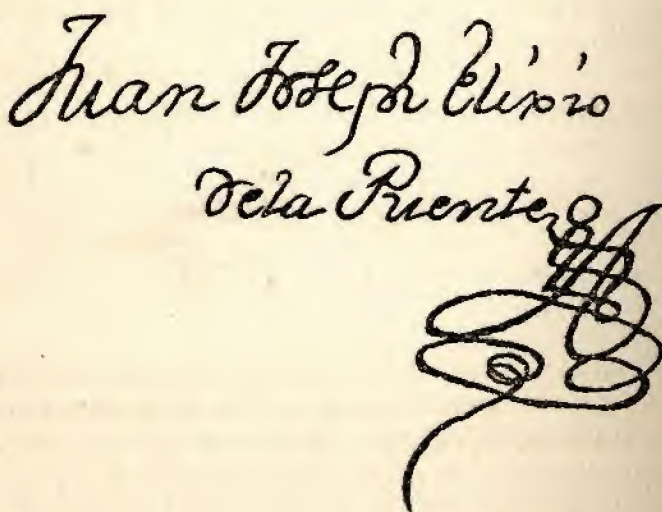 Juan Joseph Elixio
dela Puente